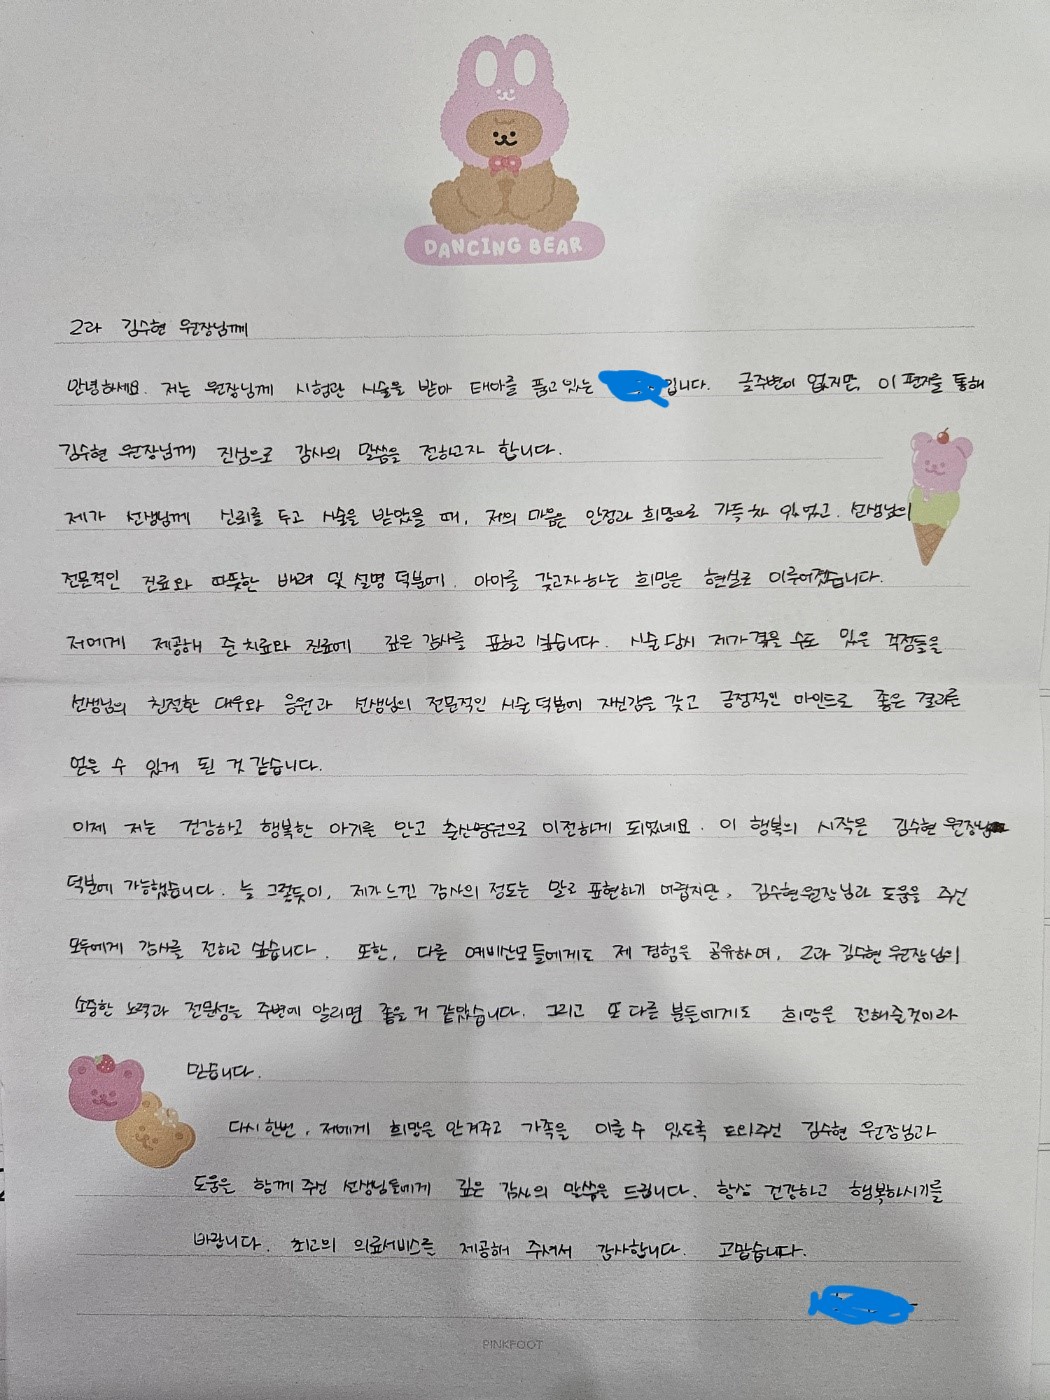 DANCING BEAR
2과 김수현 원장님께
안녕하세요. 저는 원장님께 시험관 시술을 받아 태아를 품고 있는 입니다. 글주변이 없지만, 이 편지를 통해
김수현 원장님께 진심으로 감사의 말씀을 전하고자 합니다.
제가 선생님께 신뢰를 두고 시술을 받았을 때, 저의 마음은 안정과 희망으로 가득 차 있었고, 선생님의
전문적인 진료와 따뜻한 배려 및 설명 덕분에. 아이를 갖고자 하는 희망은 현실로 이루어졌습니다.
저에게 제공해 준 치료와 진료에 깊은 감사를 표하고 싶습니다. 시술 당시 제가 겪을 수도 있은 걱정들을
선생님의 친절한 대우와 응원과 선생님의 전문적인 시술 덕분에 자신감을 갖고 긍정적인 마인드로 좋은 결과를
얻을 수 있게 된 것 같습니다.
이제 저는 건강하고 행복한 아기를 안고 출산병원으로 이전하게 되었네요. 이 행복의 시작은 김수현 원장님
덕분에 가능했습니다. 늘 그렇듯이, 제가 느낀 감사의 정도는 말로 표현하기 어렵지만, 김수현 원장님과 도움을 주신
모두에게 감사를 전하고 싶습니다. 또한, 다른 예비산모들에게도 제 경험을 공유하며, 2과 김수현 원장님의
소중한 노력과 전문성을 주변에 알리면 좋을 거 같았습니다. 그리고 또 다른 분들에게도 희망을 전해줄것이라
믿습니다.
다시 한번, 저에게 희망을 안겨주고 가족을 이룰 수 있도록 도와주신 김수현 원장님과
도움을 함께 주신 선생님들에게 깊은 감사의 말씀을 드립니다. 항상 건강하고 행복하시기를
바랍니다. 최고의 의료서비스를 제공해 주셔서 감사합니다. 고맙습니다.
PINKFOOT